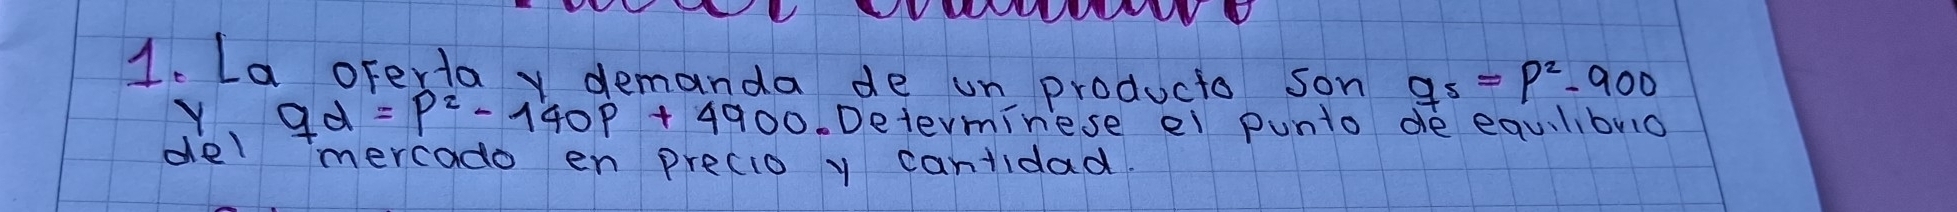 1. La oferta y demanda de un producto son qs = p² - 900
y qd = p² - 140p + 4900. Determínese el punto de equilibrio
del mercado en precio y cantidad.